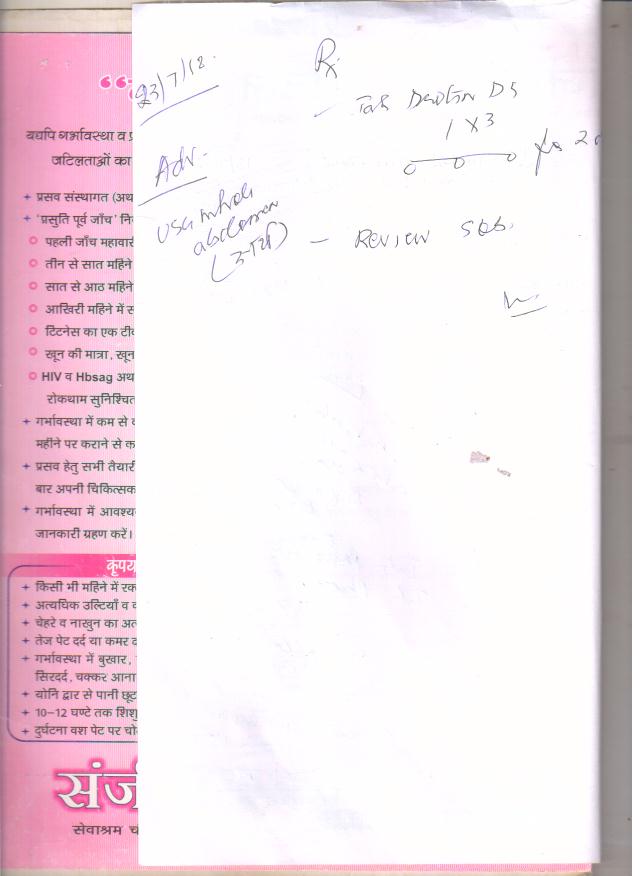 23/7/12.
Rx
Tab D5
1 X 3
0 0 0
Adv.
USG whole
abdomen
- Review SOS.
यद्यपि गर्भावस्था व
जटिलताओं का
प्रसव संस्थागत (अथ
'प्रसुति पूर्व जाँच'
पहली जाँच महावारी
तीन से सात महिने
सात से आठ महिने
आखिरी महिने में
टिटनेस का एक
खून की मात्रा, खून
HIV व Hbsag अथ
रोकथाम सुनिश्चित
गर्भावस्था में कम से
महीने पर कराने से
प्रसव हेतु सभी तैयारी
बार अपनी चिकित्सक
गर्भावस्था में आवश्य
जानकारी ग्रहण करें।
कृपय
किसी भी महिने में
अत्यधिक उल्टियाँ व
चेहरे व नाखुन का
तेज पेट दर्द या कमर
गर्भावस्था में बुखार,
सिरदर्द, चक्कर आना
योनि द्वार से पानी छूट
10-12 घण्टे तक शिशु
दुर्घटना वश पेट पर
संजी
सेवाश्रम